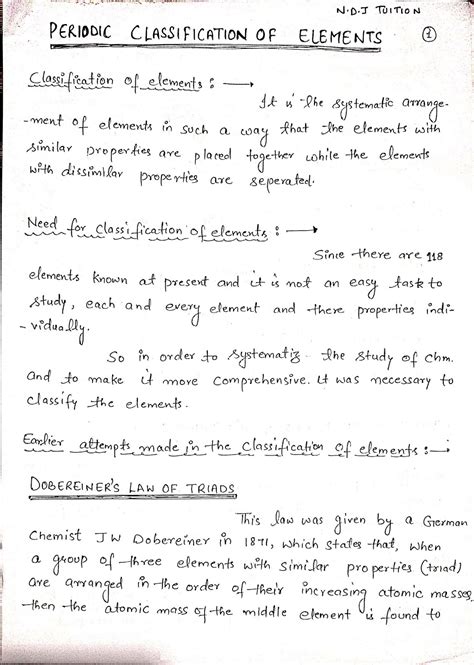 N.D.J TUITION
PERIODIC CLASSIFICATION OF ELEMENTS ①
Classification of elements : →
It is the systematic arrange-
-ment of elements in such a way that the elements with
similar properties are placed together while the elements
with dissimilar properties are seperated.
Need for classification of elements : →
Since there are 118
elements known at present and it is not an easy task to
study, each and every element and there properties indi-
-vidually.
So in order to systematiz the study of Chm.
and to make it more comprehensive. it was necessary to
classify the elements.
Earlier attempts made in the classification of elements :→
DOBEREINER'S LAW OF TRIADS
This law was given by a German
Chemist JW Dobereiner in 1871, which states that, when
a group of three elements with similar properties (triad)
are arranged in the order of their increasing atomic masses
then the atomic mass of the middle element is found to